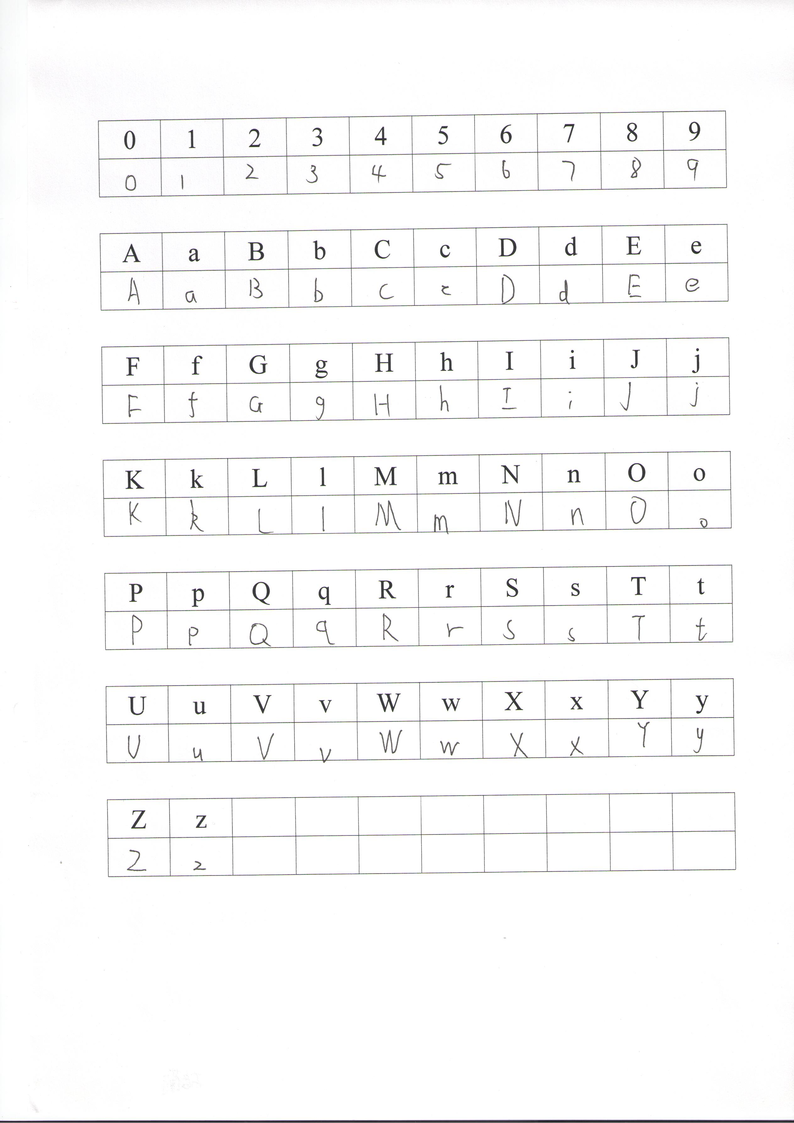 0 1 2 3 4 5 6 7 8 9
0 1 2 3 4 5 6 7 8 9
A a B b C c D d E e
A a B b C c D d E e
F f G g H h I i J j
F f G g H h I i J j
K k L l M m N n O o
K k L l M m N n O o
P p Q q R r S s T t
P p Q q R r S s T t
U u V v W w X x Y y
U u V v W w X x Y y
Z z
Z z